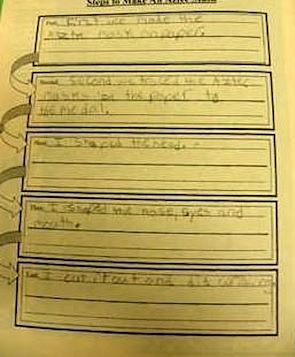 Steps to Make An Aztec Mask
First we made the
Aztec mask on paper.
Second we traced the Aztec
mask on the paper to
the medal.
I shaped the head.
I shaped the nose, eyes and
mouth.
I cut it out and did